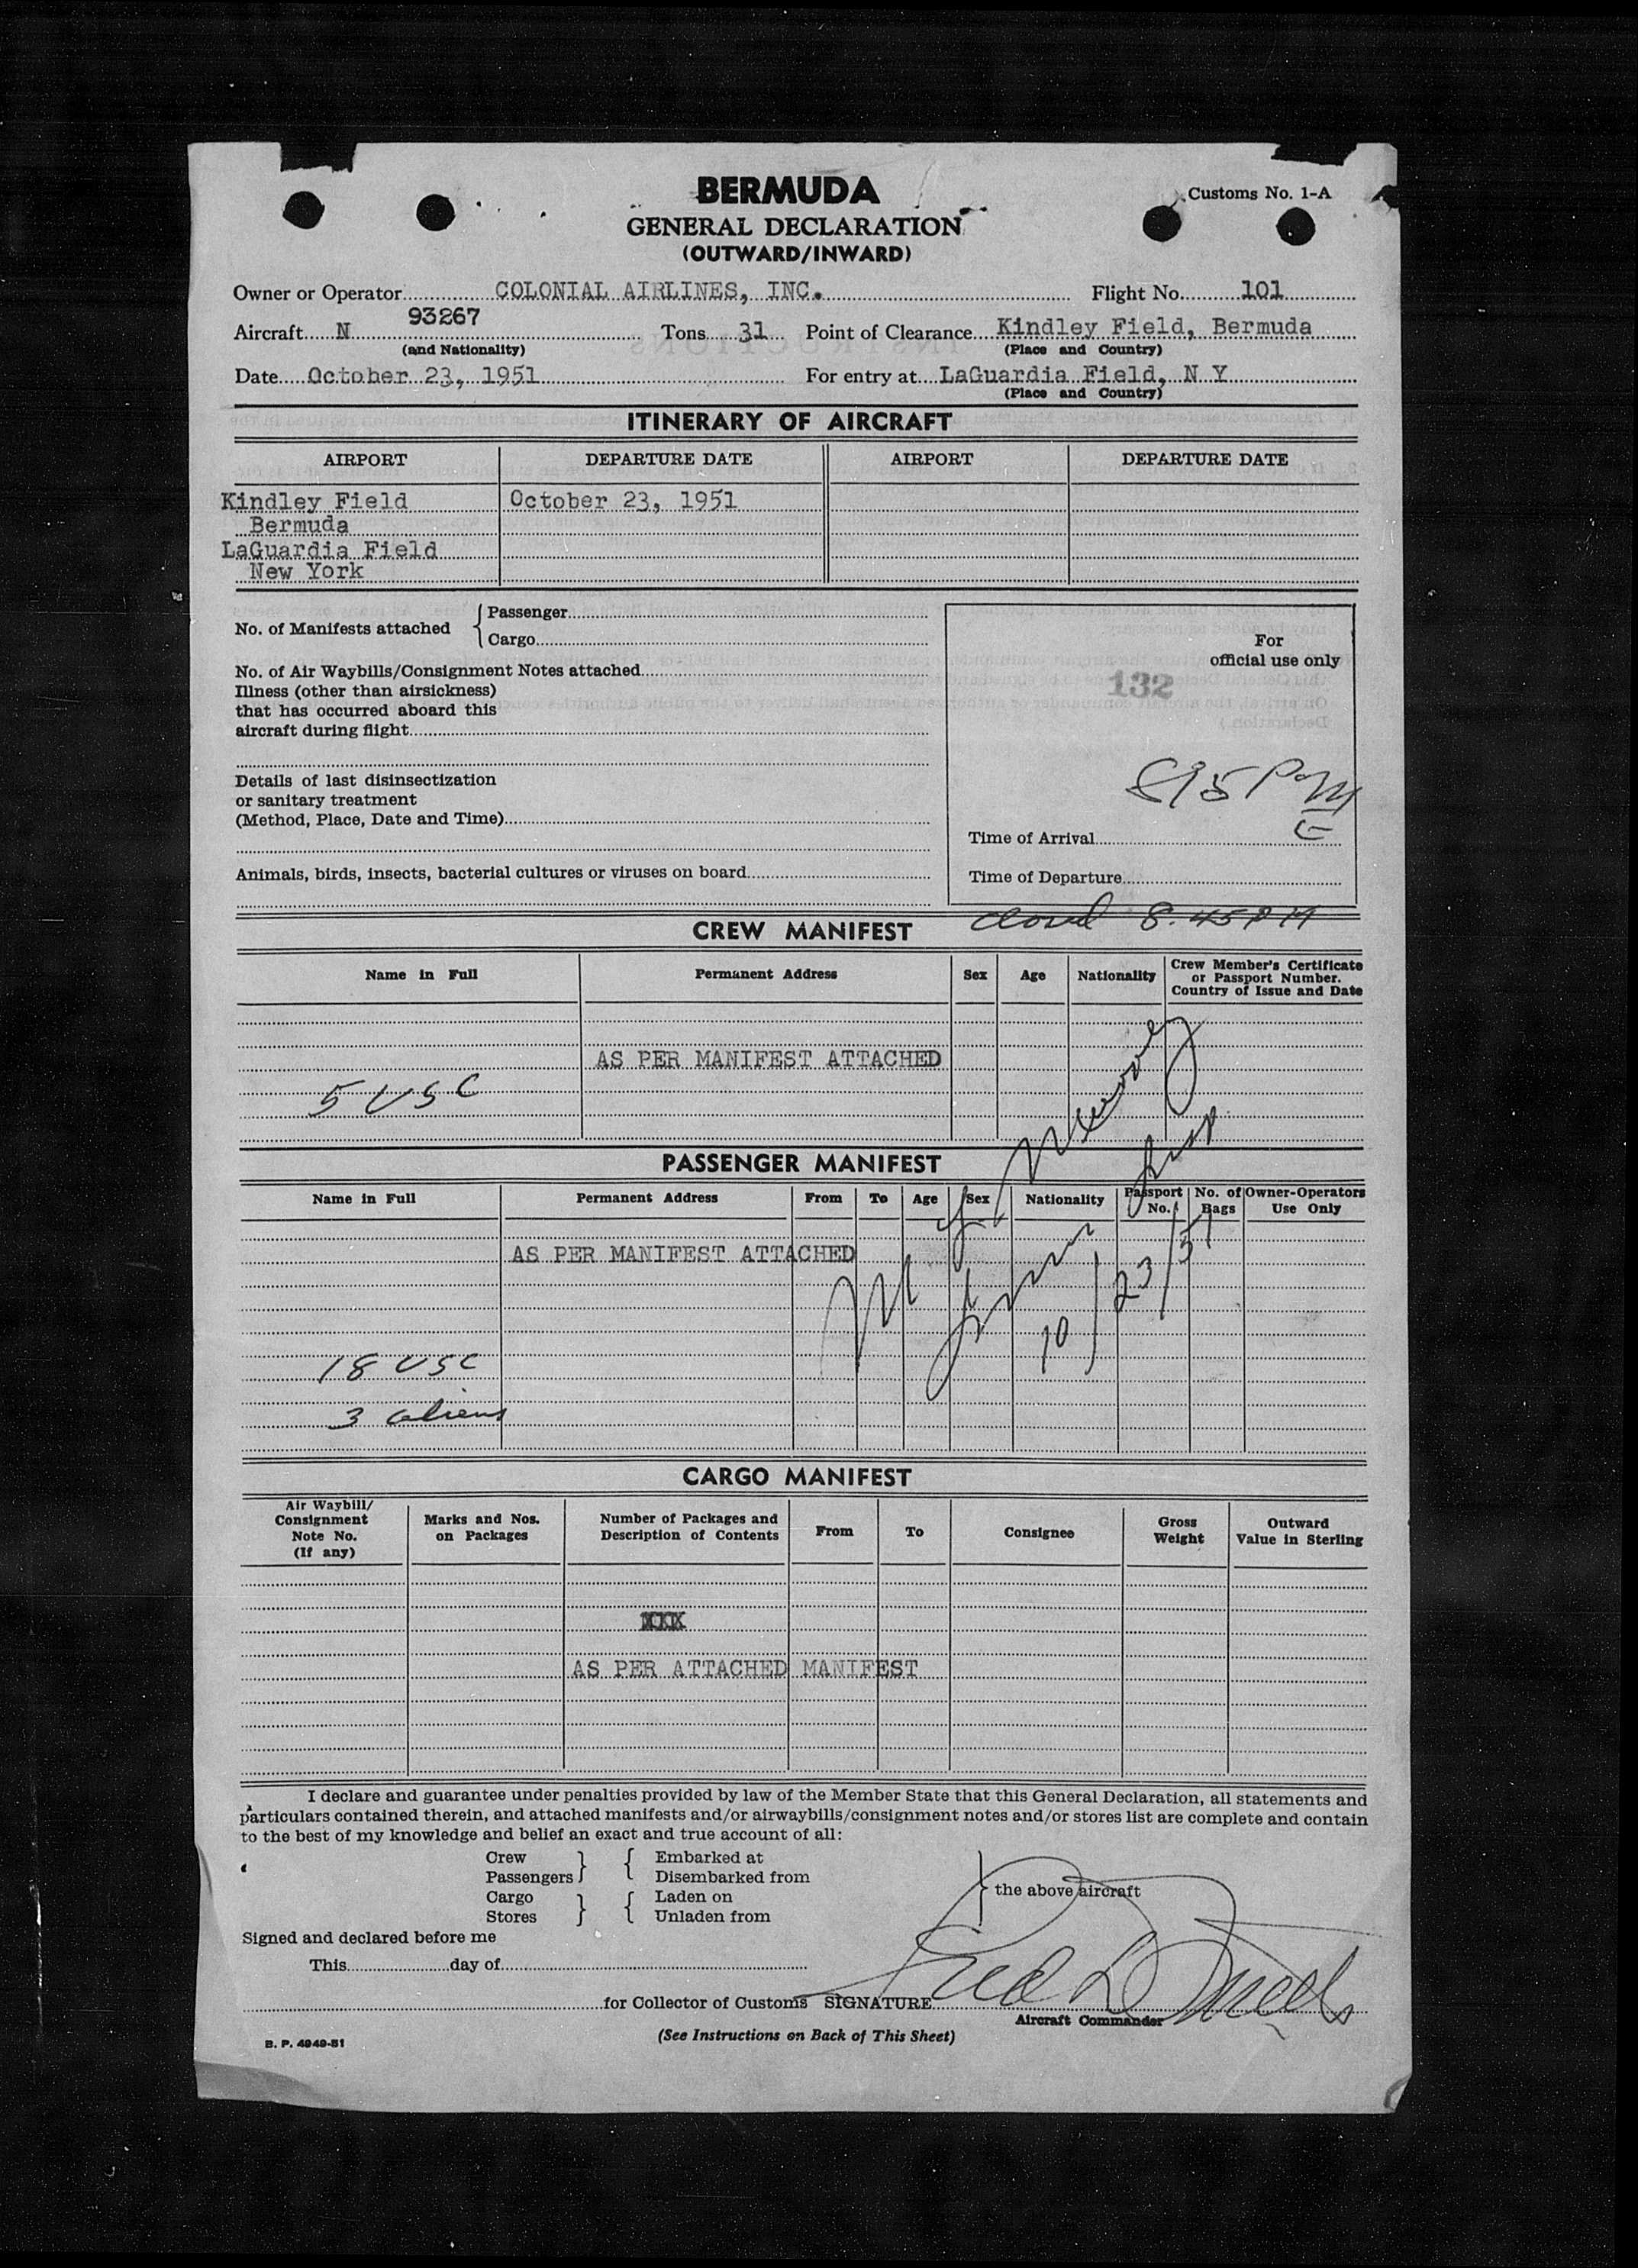 BERMUDA
Customs No. 1-A
GENERAL DECLARATION
(OUTWARD/INWARD)
Owner or Operator COLONIAL AIRLINES, INC. Flight No. 101
Aircraft N 93267 Tons 31 Point of Clearance Kindley Field, Bermuda
(and Nationality) (Place and Country)
Date October 23, 1951 For entry at LaGuardia Field, N Y
(Place and Country)
ITINERARY OF AIRCRAFT
AIRPORT DEPARTURE DATE AIRPORT DEPARTURE DATE
Kindley Field October 23, 1951
Bermuda
LaGuardia Field
New York
No. of Manifests attached { Passenger
Cargo
For
official use only
No. of Air Waybills/Consignment Notes attached
132
Illness (other than airsickness)
that has occurred aboard this
aircraft during flight
Details of last disinsectization
or sanitary treatment
(Method, Place, Date and Time)
815 PM
Time of Arrival
Animals, birds, insects, bacterial cultures or viruses on board
Time of Departure
closed 8:45 PM
CREW MANIFEST
Name in Full Permanent Address Sex Age Nationality Crew Member's Certificate
or Passport Number.
Country of Issue and Date
AS PER MANIFEST ATTACHED
5 USC
PASSENGER MANIFEST
Name in Full Permanent Address From To Age Sex Nationality Passport No. No. of Bags Owner-Operators Use Only
AS PER MANIFEST ATTACHED
10/23/51
18 USC
3 aliens
CARGO MANIFEST
Air Waybill/
Consignment
Note No.
(If any)
Marks and Nos.
on Packages
Number of Packages and
Description of Contents
From To Consignee
Gross
Weight
Outward
Value in Sterling
XXX
AS PER ATTACHED MANIFEST
I declare and guarantee under penalties provided by law of the Member State that this General Declaration, all statements and
particulars contained therein, and attached manifests and/or airwaybills/consignment notes and/or stores list are complete and contain
to the best of my knowledge and belief an exact and true account of all:
Crew } { Embarked at
Passengers Disembarked from
Cargo } { Laden on
Stores Unladen from
} the above aircraft
Signed and declared before me
This day of
for Collector of Customs SIGNATURE
Aircraft Commander
(See Instructions on Back of This Sheet)
B. P. 4949-51